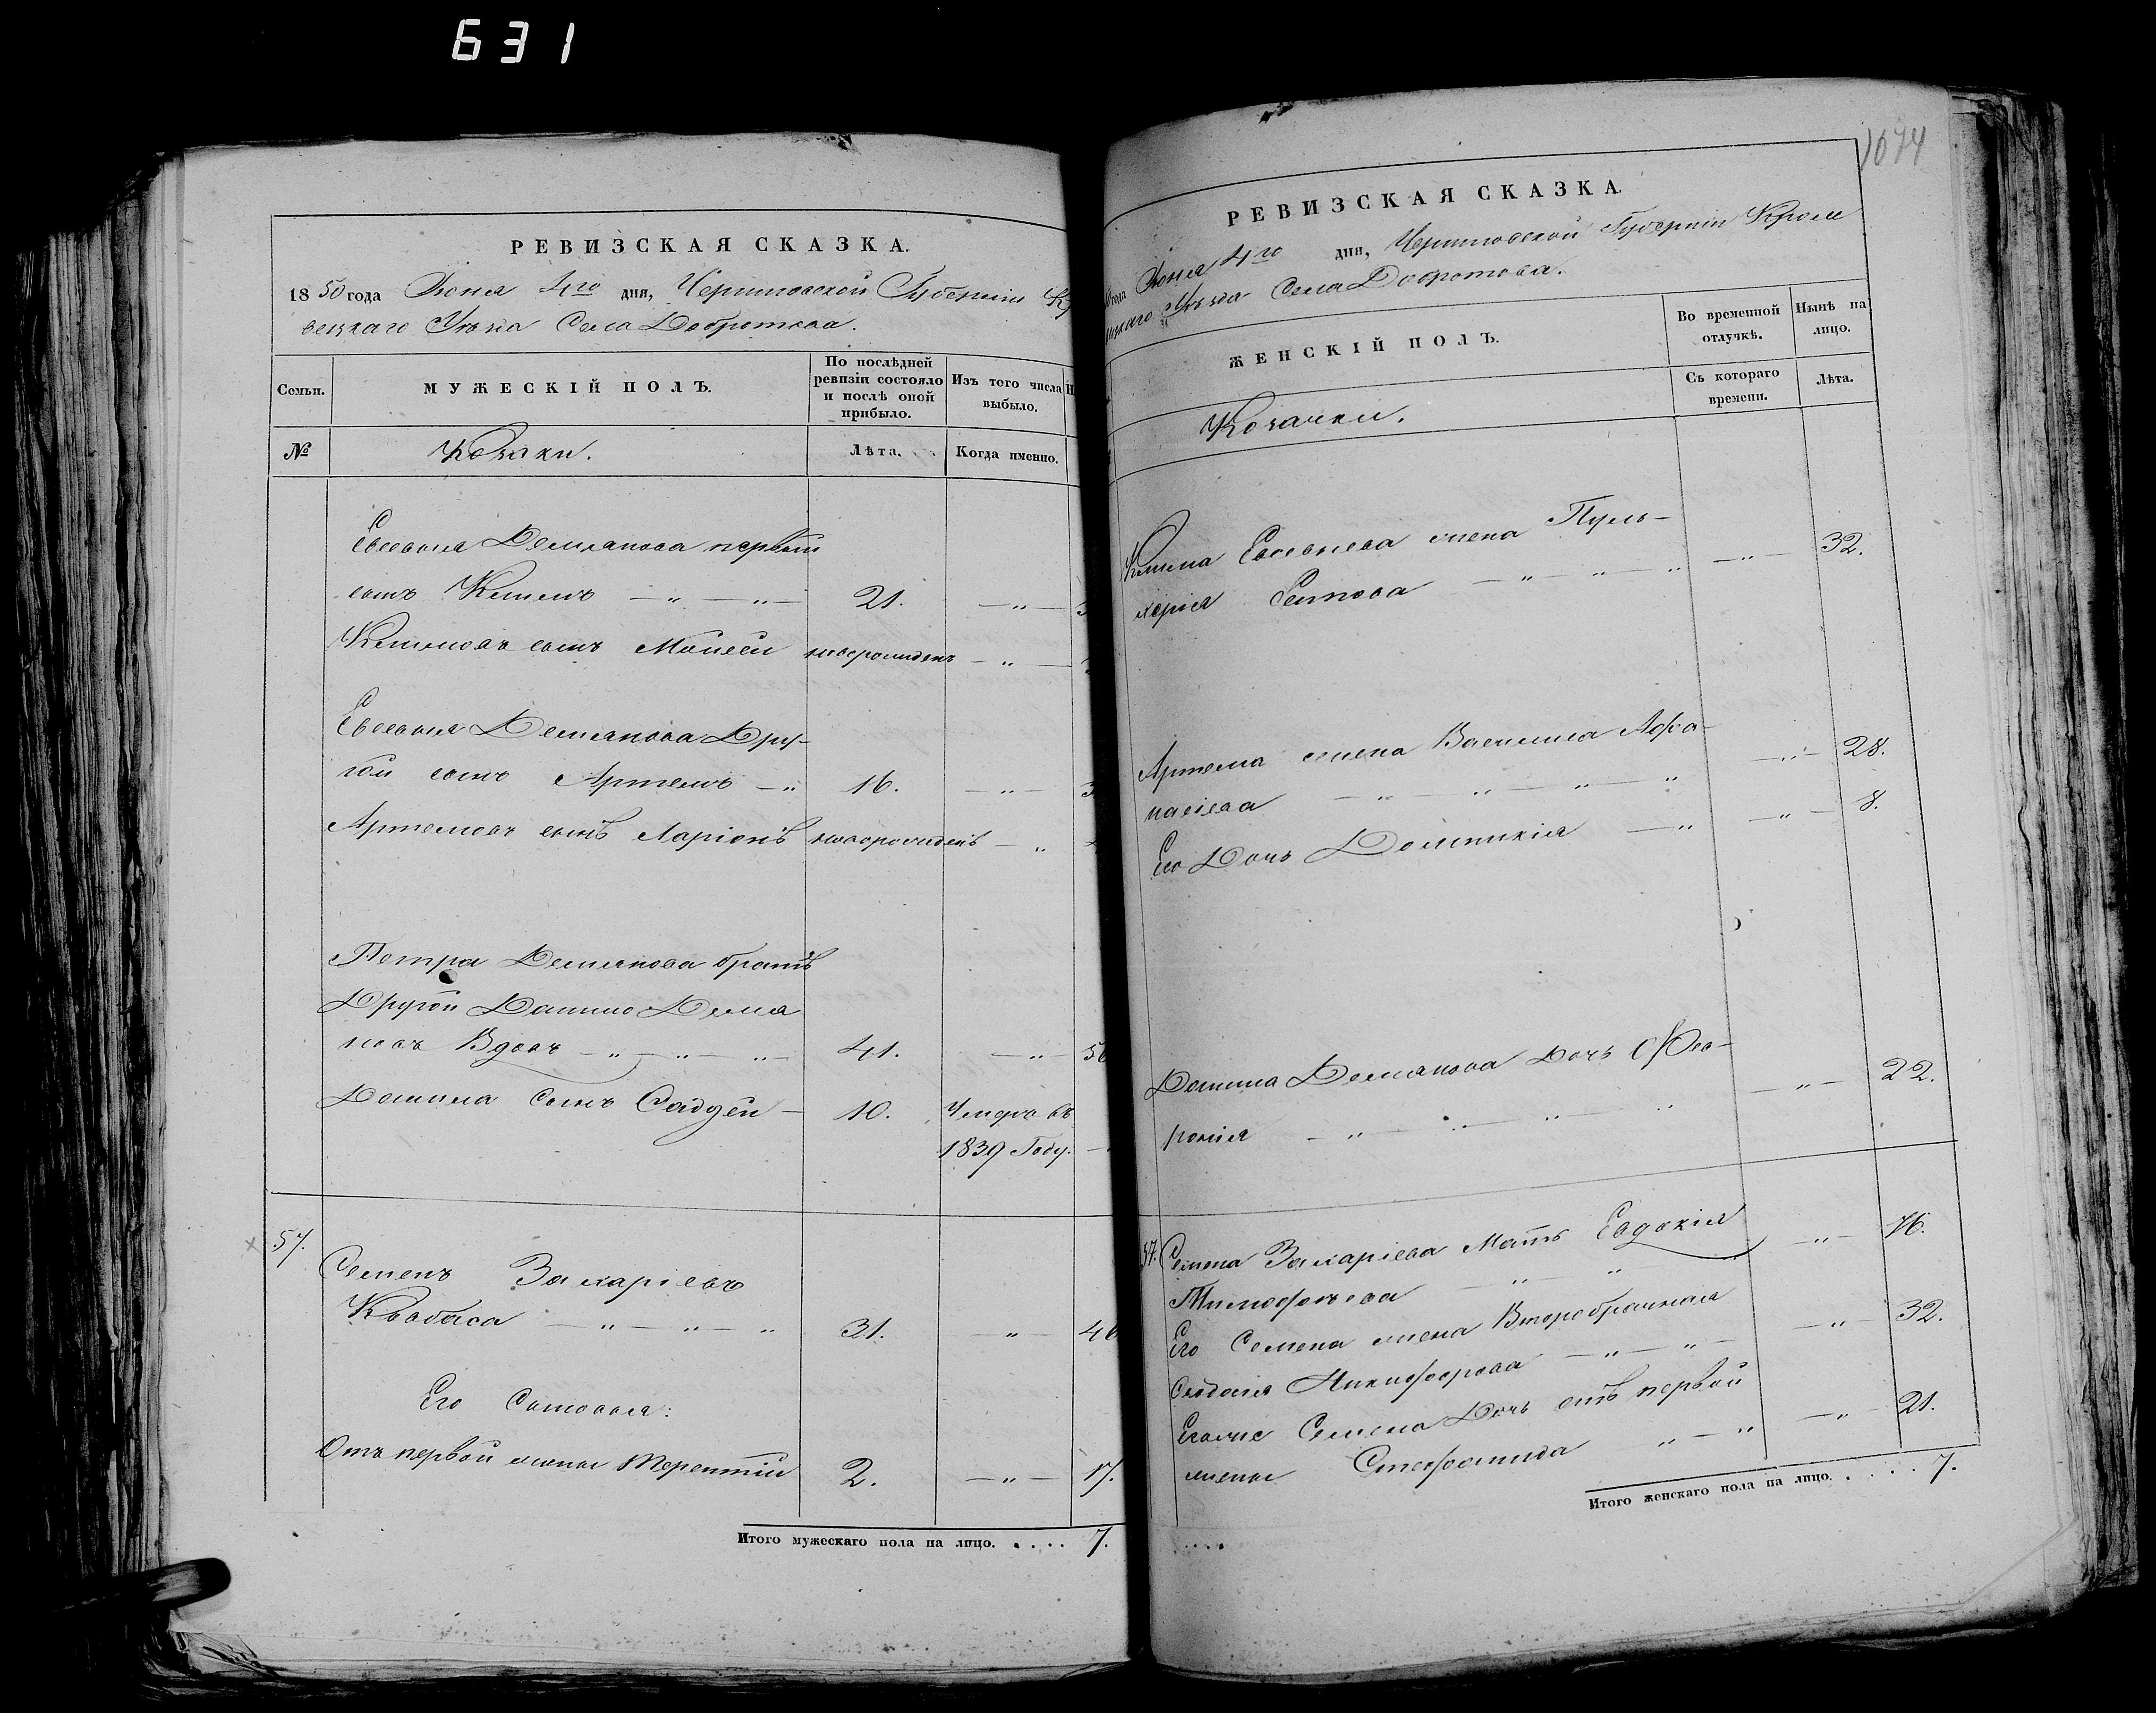 631
РЕВИЗСКАЯ СКАЗКА.
1850 года Іюня 4го дня, Черниговской Губерніи К
вецкаго Уѣзда Села Добротова.
Семьи.
МУЖЕСКІЙ ПОЛЪ.
По послѣдней ревизіи состояло и послѣ оной прибыло.
Изъ того числа выбыло.
№
Козаки.
Лѣта.
Когда именно.
Евсевія Демянова первый
сынъ Климъ — " — " — 21. — " —
Климовъ сынъ Моисей новорожденъ — " —
Евсевія Демянова Дру-
гой сынъ Артемъ — " 16. — " —
Артемовъ сынъ Ларіонъ новорожденъ — "
Петра Демянова братъ
Другой Данило Демя
новъ Вдовъ — " — " — " — 41. — " —
Данила сынъ — 10. Умеръ въ
1839 Году.
57.
Семенъ Захаріевъ
— " — " — " 31. — " —
Его Сыновья:
Отъ первой жены Терентій 2. — " — 17.
Итого мужескаго пола на лицо. . . . . 7.
1074
РЕВИЗСКАЯ СКАЗКА.
года Іюня 4го дня, Черниговской Губерніи Кроле
вецкаго Уѣзда Села Добротова.
ЖЕНСКІЙ ПОЛЪ.
Во временной отлучкѣ.
Нынѣ на лицо.
Съ котораго времени.
Лѣта.
Козачки.
Клима Евсевіева жена Пуль-
херія — " — " — " — " — 32.
Артема жена Василиса Афа-
насіева — " — " — " — " — " — 28.
Его Дочь Домникія — " — " — 8.
Данила Демянова Дочь Фев-
ронія — " — " — " — " — " — 22.
57. Семена Захаріева Мать Евдокія — " — 76.
Тимофѣева — " — "
Его Семена жена Второбрачная — " — 32.
Никифорова — " — " —
Егоже Семена Дочь отъ первой — " — 21.
жены Стефанида " — "
Итого женскаго пола на лицо. . . . . 7.